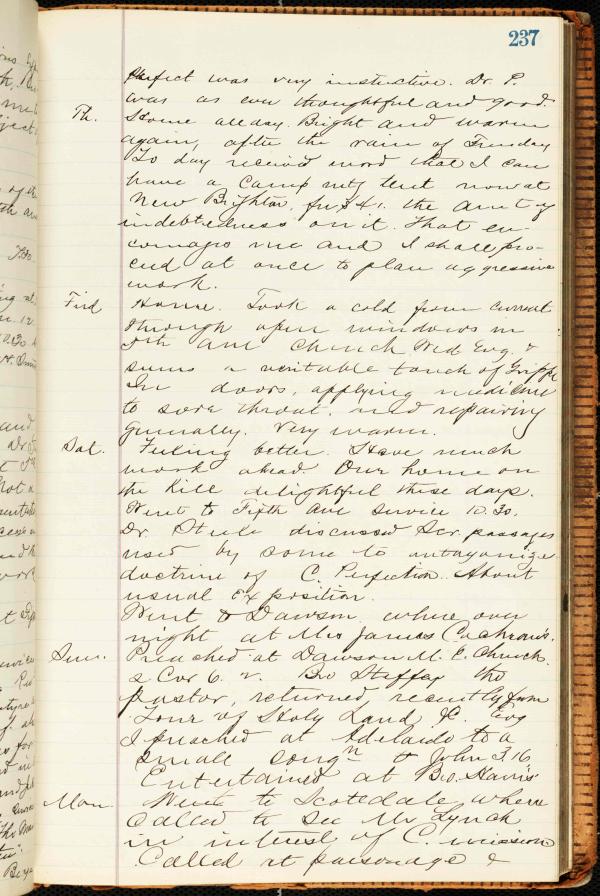 237
Perfect was very instructive. Dr. P.
was as ever thoughtful and good.
Th. Home all day. Bright and warm
again, after the rain of Tuesday
To day received word that I can
have a camp mtg tent now at
New Brighton, for $41. the amt of
indebtedness on it. That en-
courages me and I shall pro-
ceed at once to plan aggressive
work.
Frid Home. Took a cold from current
through open windows in
5th ave Church Wed Evg. &
seems a veritable touch of Grippe
In doors, applying medicine
to sore throat, and repairing
generally. Very warm.
Sat. Feeling better. Have much
work ahead Our home on
the hill delightful these days.
Went to Fifth Ave service 10.30.
Dr. Steele discussed Scr. passages
used by some to antagonize
doctrine of C. Perfection. About
usual exposition.
Went to Dawson where over
night at Mrs James Cochran's.
Sun. Preached at Dawson M. E. Church.
2 Cor 6. 2. Bro Steffey the
pastor, returned recently from
Tour of Holy Land &c. Evg
I preached at Adelaide to a
small congn to John 3.16
Entertained at Bro. Harris'
Mon. Went to Scotdale where
Called to see Mr Lynch
in interest of C. mission
Called at parsonage &